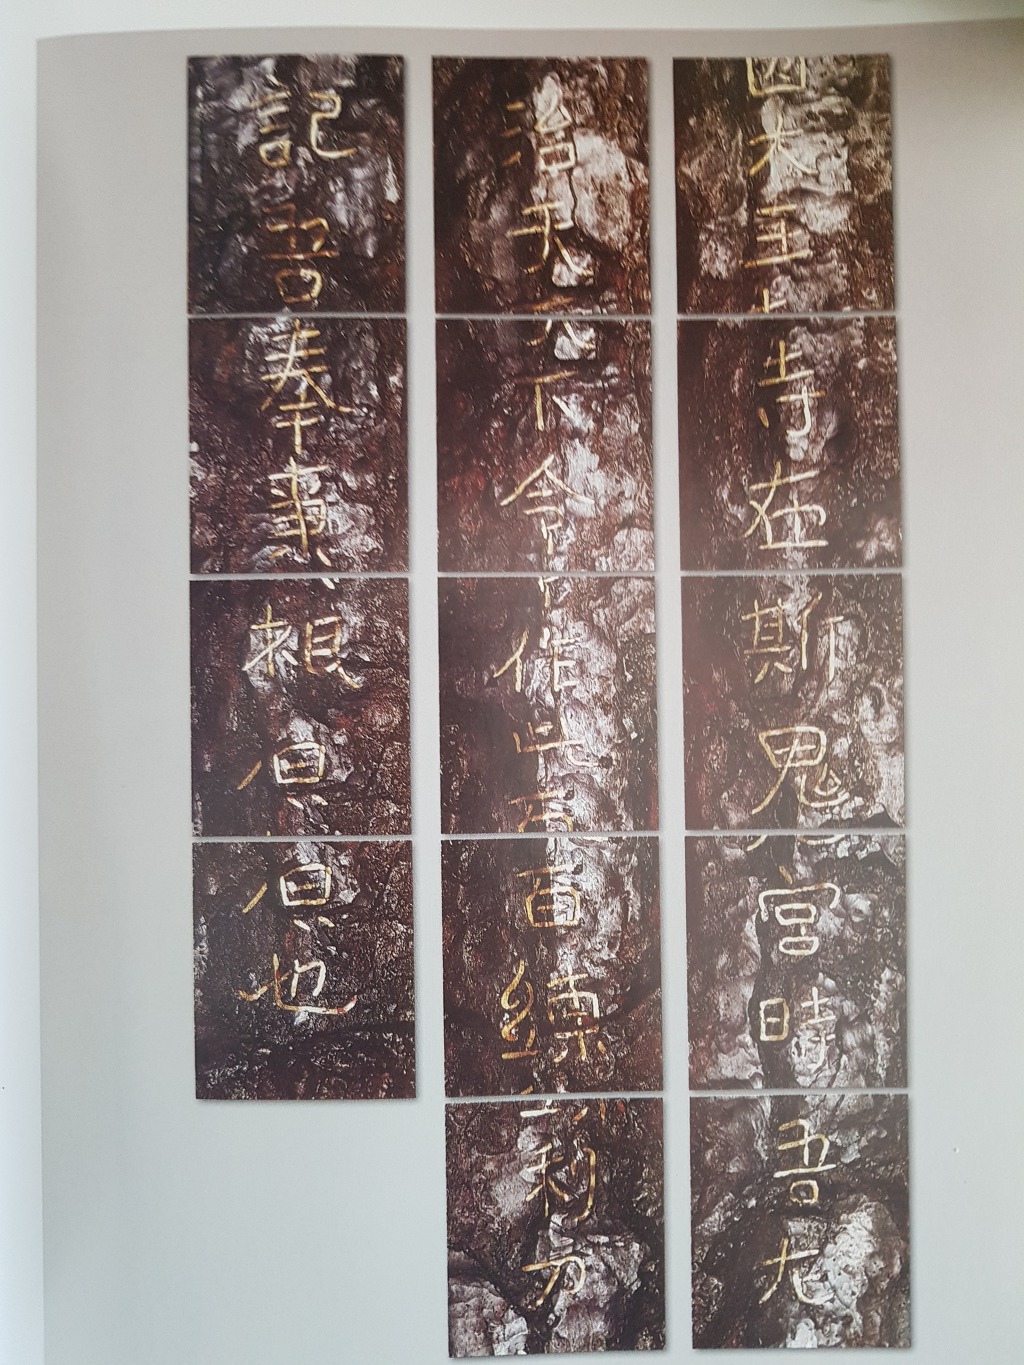 鹵大王寺在斯鬼宮時吾左
治天下令作此百練利刀
記吾奉事根原也